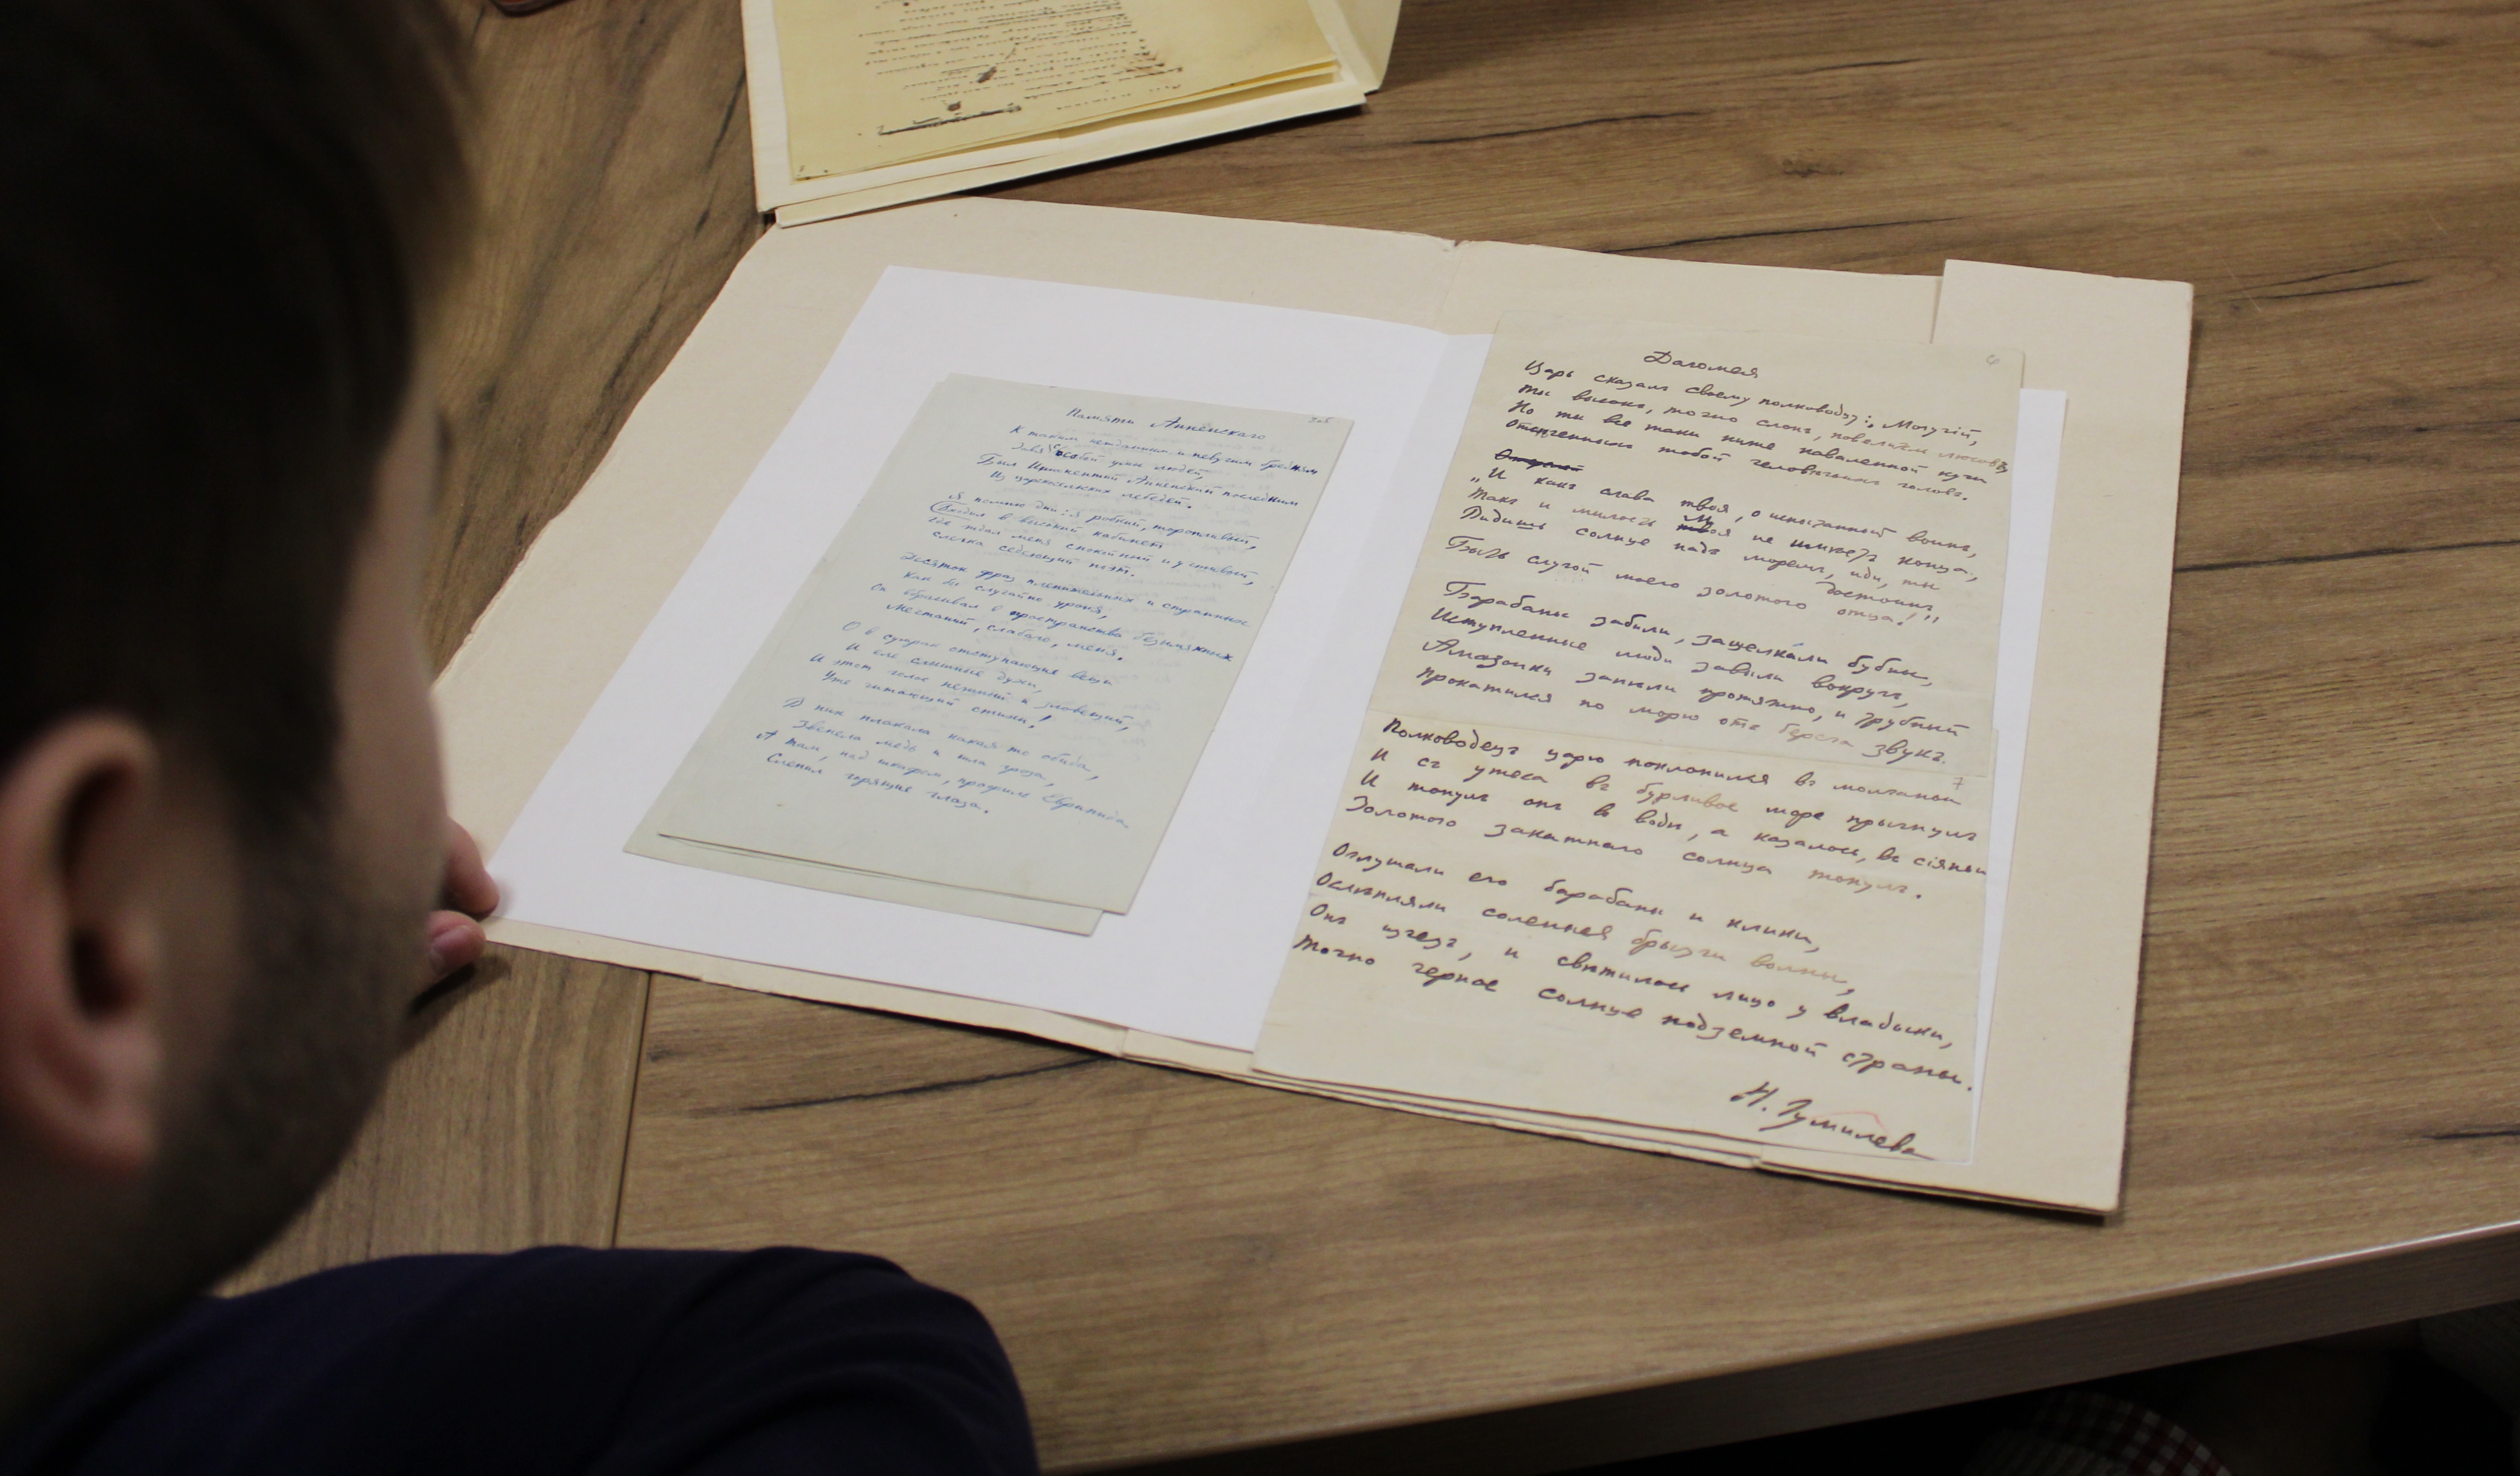 Памяти Анненского
305
К таким нежданным и певучим бредням
Зовя с собой умы людей,
Был Иннокентий Анненский последним
Из царскосельских лебедей.
Я помню дни: я робкий, торопливый,
Входил в высокий кабинет
Где ждал меня спокойный и учтивый,
слегка седеющий поэт.
Десяток фраз пленительных и странных
как бы случайно уроня,
Он вбрасывал в пространства безымянных
Мечтаний, слабого, меня.
О в сумрак отступающие вещи
И еле слышные духи,
И этот голос нежный и зловещий,
Уже читающий стихи!
В них плакала какая то обида,
Звенела медь и шла гроза,
А там, над шкафом, профиль Еврипида
Слепил горящие глаза.
Дагомея
6
Царь сказалъ своему полководцу: „Могучій,
Ты высокъ, точно слонъ, повелитель лѣсовъ,
Но ты все таки ниже наваленной кучи
Отсѣченныхъ тобой человѣчьихъ головъ.
„И какъ слава твоя, о испытанный воинъ,
Такъ и милость моя не имѣетъ конца,
Видишь солнце надъ моремъ, иди, ты
достоинъ,
Быть слугой моего золотого отца!"
Барабаны забили, защелкали бубны,
Иступленные люди завыли вокругъ,
Амазонки запѣли протяжно, и трубный
Прокатился по морю отъ берега звукъ.
7
Полководецъ царю поклонился въ молчаньи
И съ утеса въ бурливое море прыгнулъ
И тонулъ онъ въ воды, а казалось, въ сіяньи
Золотого закатнаго солнца тонулъ.
Оглушали его барабаны и клики,
Ослѣпляли соленыя брызги волны,
Онъ исчезъ, и свѣтилось лицо у владыки,
Точно черное солнце подземной страны.
Н. Гумилевъ